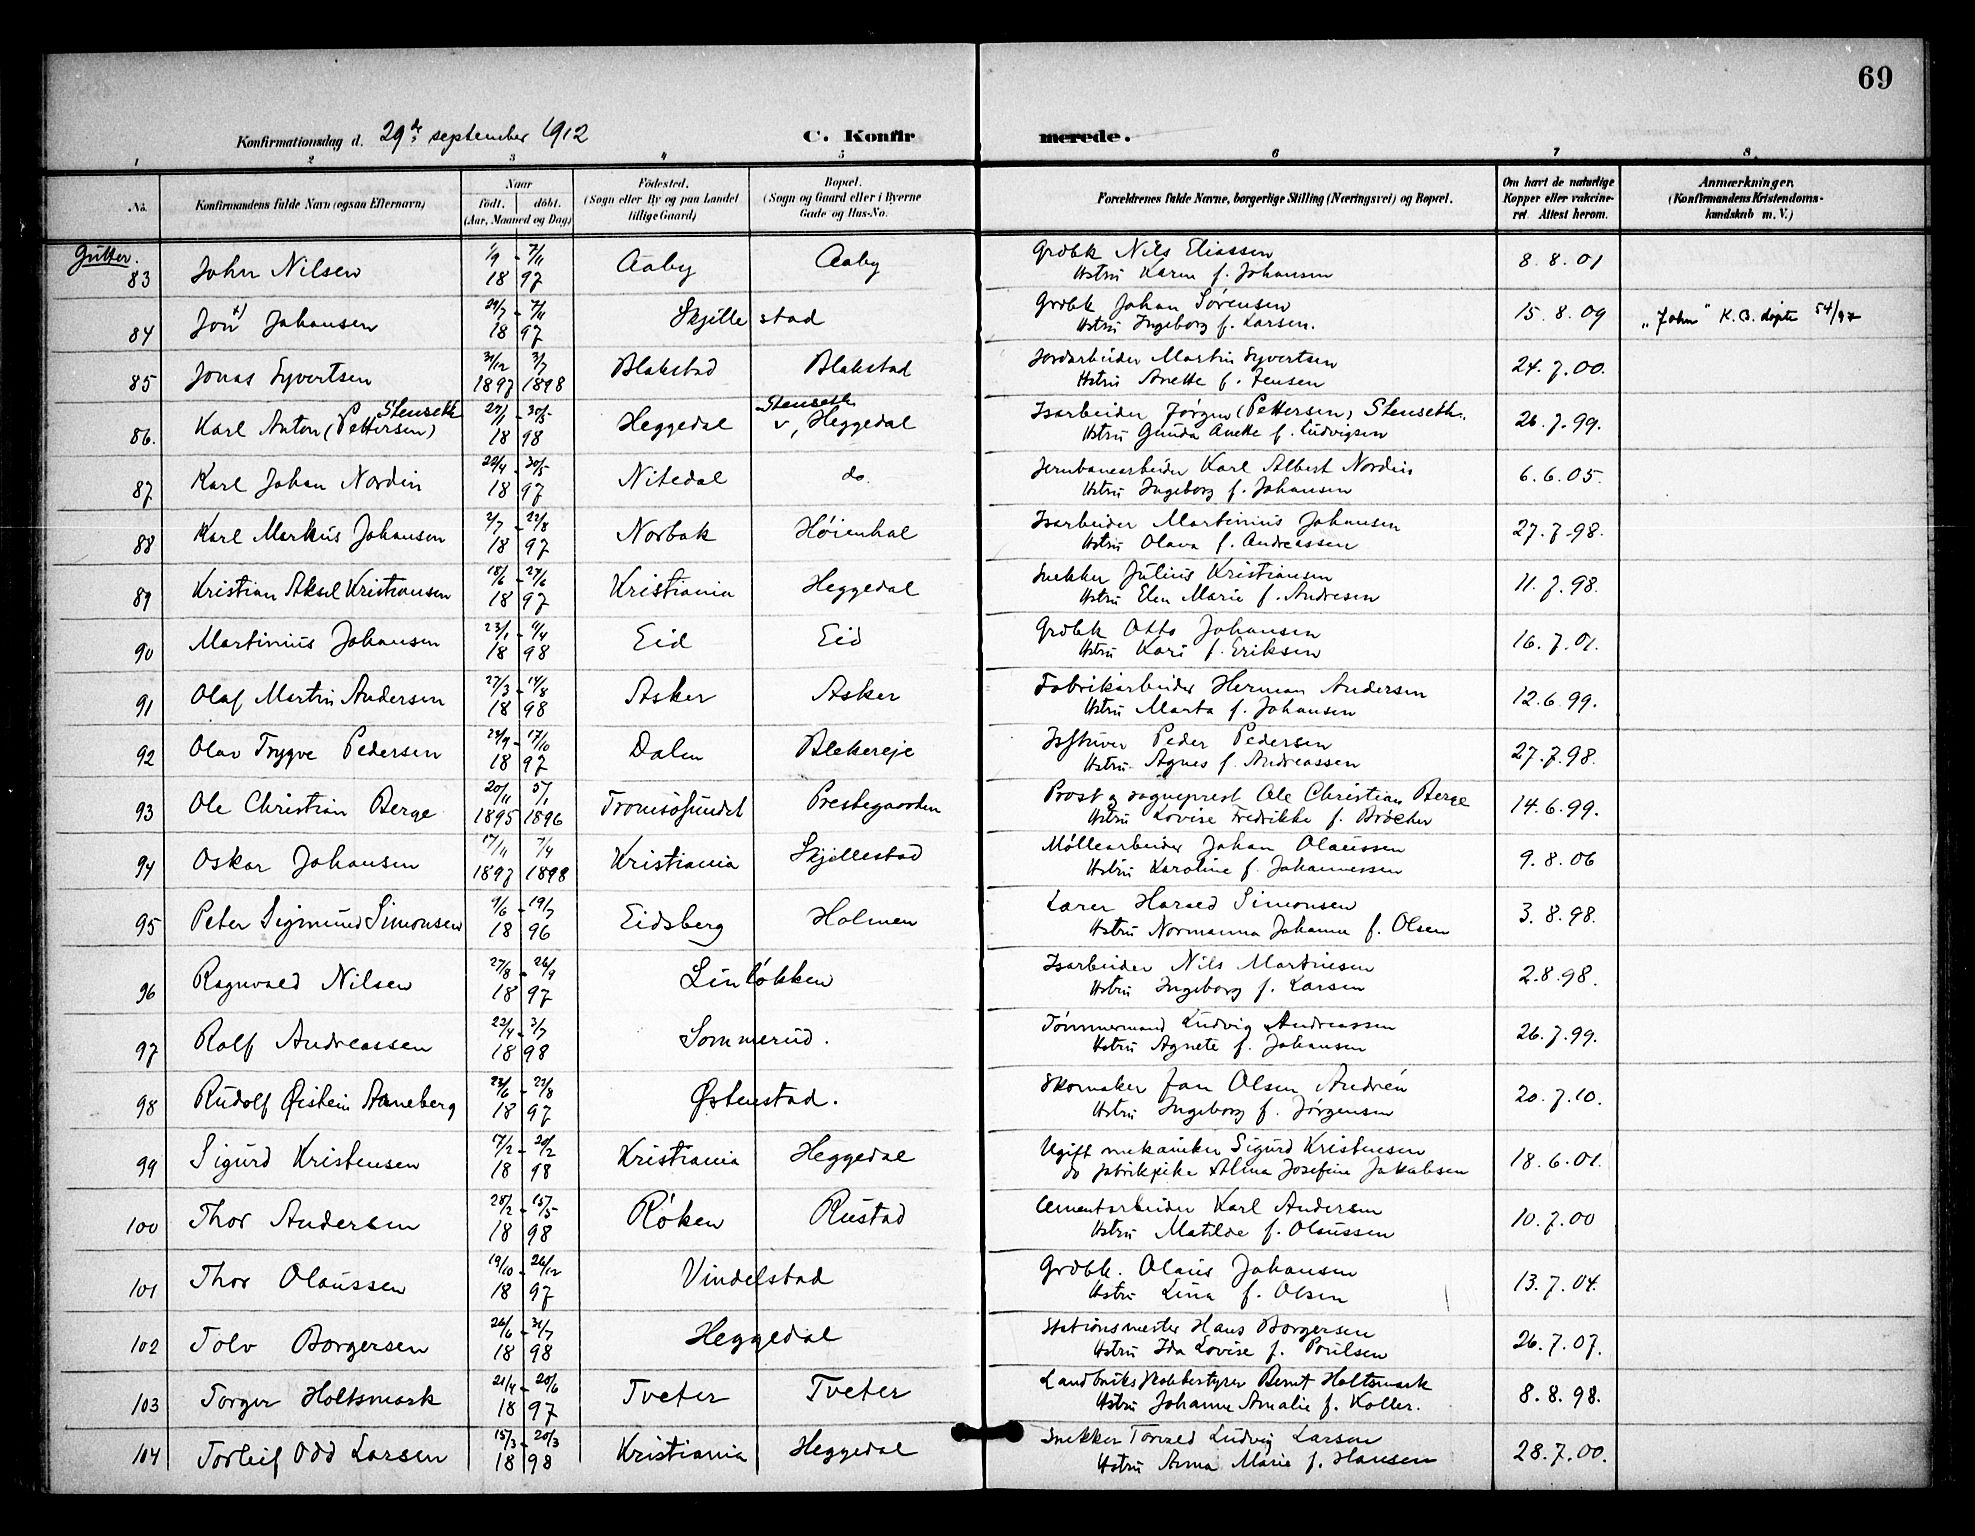 69
Konfirmationsdag d. 29de september 1912
C. Konfirmerede.
1 2 3 4 5 6 7 8.
No. | Konfirmandens fulde Navn (ogsaa Efternavn) | Naar født. døbt. (Aar, Maaned og Dag) | Fødested. (Sogn eller By og paa Landet tillige Gaard) | Bopæl. (Sogn og Gaard eller i Byerne Gade og Hus-No. | Forældrenes fulde Navne, borgerlige Stilling (Næringsvei) og Bopæl. | Om havt de naturlige Kopper eller vakcineret. Attest herom. | Anmærkninger. (Konfirmandens Kristendomskundskab m. V.)
Gutter.
83 John Nilsen 1/9 - 7/11 1897 Aaby Aaby Grdbk Nils Eliassen Hstru Karen f. Johansen 8.8.01
84 Jon x) Johansen 29/7 - 7/11 1897 Skjillestad Grdbk Johan Sørensen Hstru Ingeborg f. Larsen. 15.8.09 "John" K.B. døpte 54/97
85 Jonas Syvertsen 31/12 1897 3/7 1898 Blakstad Blakstad Jordarbeider Martin Syvertsen Hstru Anette f. Jensen 24.7.00.
86. Karl Anton (Pettersen) Stenseth 27/1 - 30/5 1898 Heggedal Stenseth v, Heggedal Isarbeider Jørgen (Pettersen) Stenseth. Hstru Gunda Anette f. Ludvigsen 26.7.99.
87 Karl Johan Nordin 22/4 - 30/5 1897 Nitedal do. Jernbanearbeider Karl Albert Nordin Hstru Ingeborg f. Johansen 6.6.05.
88 Karl Markus Johansen 2/7 - 22/8 1897 Norbak Høienhal Isarbeider Martinius Johansen Hstru Olava f. Andreassen 27.7.98.
89 Kristian Aksel Kristiansen 18/6 - 27/6 1897 Kristiania Heggedal Snekker Julius Kristiansen Hstru Elen Marie f. Andresen 11.7.98.
90 Martinius Johansen 23/1 - 11/4 1898 Eid Eid Grdbk Otto Johansen Hstru Kari f. Eriksen 16.7.01.
91 Olaf Martin Andersen 27/3 - 14/8 1898 Asker Asker Fabrikarbeider Herman Andersen Hstru Marta f. Johansen 12.6.99.
92 Olav Trygve Pedersen 24/9 - 17/10 1897 Dalen Blekereje Isstuver Peder Pedersen Hstru Agnes f. Andreassen 27.7.98.
93 Ole Christian Berge 20/11 1895 5/1 1896 Tromsøsundet Prestegaarden Prost og sogneprest Ole Christian Berge Hstru Lovise Fredrikke f. Brøcher 14.6.99.
94 Oskar Johansen 17/11 1897 7/4 1898 Kristiania Skjillestad Møllearbeider Johan Olaussen Hstru Karoline f. Johannessen 9.8.06
95 Peter Sigmund Simonsen 9/6 - 19/7 1896 Eidsberg Holmen Lærer Harald Simonsen Hstru Normanna Johanne f. Olsen 3.8.98.
96 Ragnvald Nilsen 27/8 - 26/9 1897 Linløkken Isarbeider Nils Martinsen Hstru Ingeborg f. Larsen 2.8.98.
97 Rolf Andreassen 23/4 - 3/7 1898 Sommerud. Tømmermand Ludvig Andreassen Hstru Agnete f. Johansen 26.7.99.
98 Rudolf Øistein Aaneberg 23/6 - 22/8 1897 Østenstad. Skomaker Jan Olsen Andrén Hstru Ingeborg f. Jørgensen 20.7.10.
99 Sigurd Kristensen 17/2 - 20/2 1898 Kristiania Heggedal Ugift mekaniker Sigurd Kristensen do fabrikpike Alma Josefine Jakobsen 18.6.01.
100 Thor Andersen 25/2 - 15/5 1898 Røken Rustad Cementarbeider Karl Andersen Hstru Matilde f. Olaussen 10.7.00
101 Thor Olaussen 19/10 - 26/12 1897 Vindelstad Grdbk. Olaus Johansen Hstru Lina f. Olsen 13.7.04.
102 Tolv Borgersen 26/6 - 31/7 1898 Heggedal Stationsmester Hans Borgersen Hstru Ida Lovise f. Poulsen 26.7.07.
103 Torger Holtsmark 21/4 - 20/6 1897 Tveter Tveter Landbruksskolebestyrer Bernt Holtsmark Hstru Johanne Amalie f. Koller. 8.8.98.
104 Torleif Odd Larsen 15/3 - 20/3 1898 Kristiania Heggedal Snekker Torvald Ludvig Larsen Hstru Anna Marie f. Hansen 28.7.00.